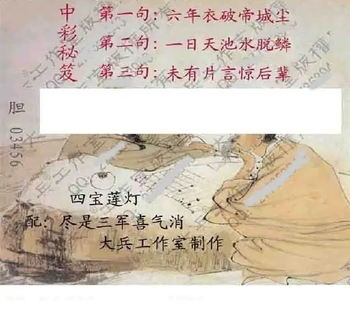 中彩秘笈
第一句：六年衣破帝城尘
第二句：一日天池水脱鳞
第三句：未有片言惊后辈
胆 03456
四宝莲灯
配：尽是三军喜气消
大兵工作室制作